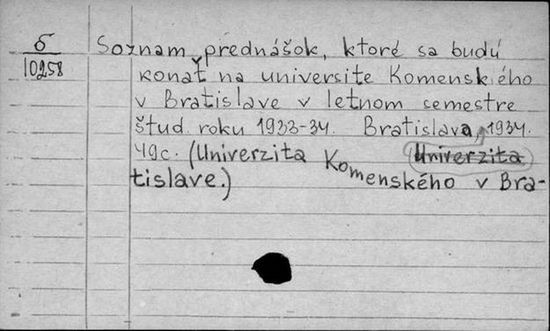 б
10258
Soznam prednášok, ktoré sa budú
konať na universite Komenského
v Bratislave v letnom semestre
štud. roku 1933-34. Bratislava, 1934.
49с. (Univerzita Komenského v Bra-
tislave.)
Univerzita